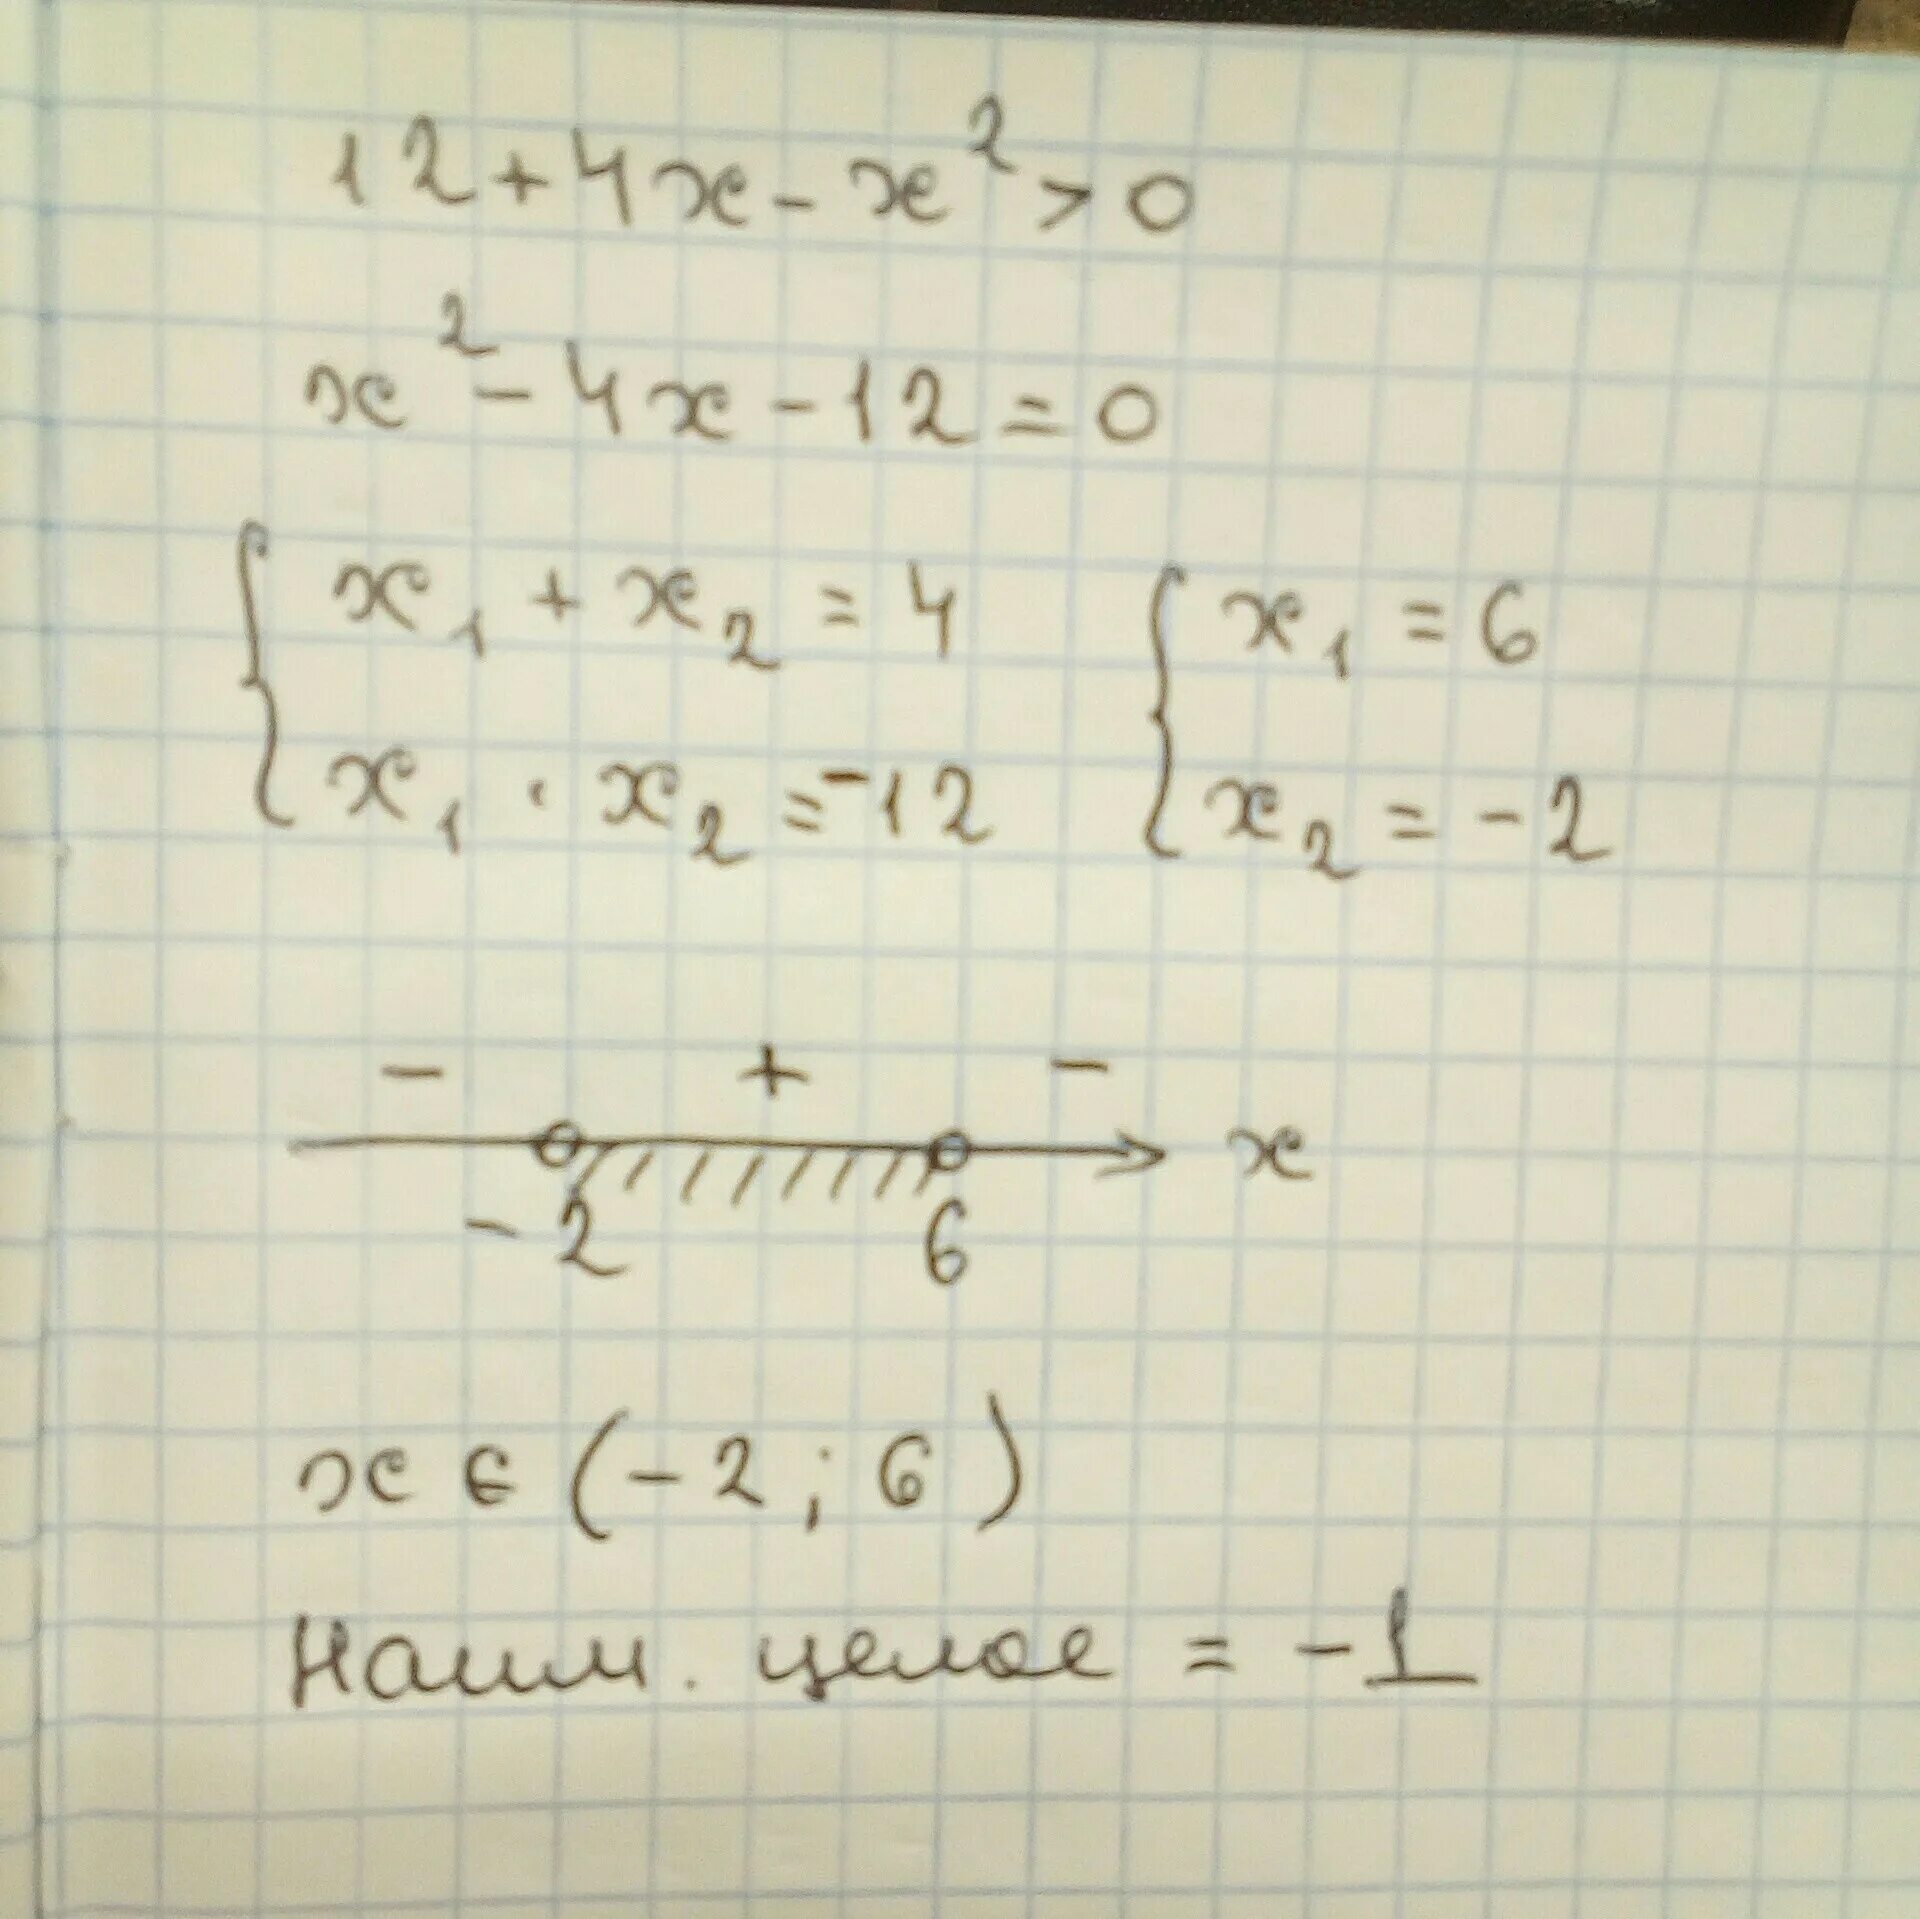 12+4x-x²>0
x²-4x-12=0
{ x₁+x₂=4 { x₁=6
{ x₁·x₂=-12 { x₂=-2
- + -
x
-2 6
x∈(-2;6)
Наим. целое = -1